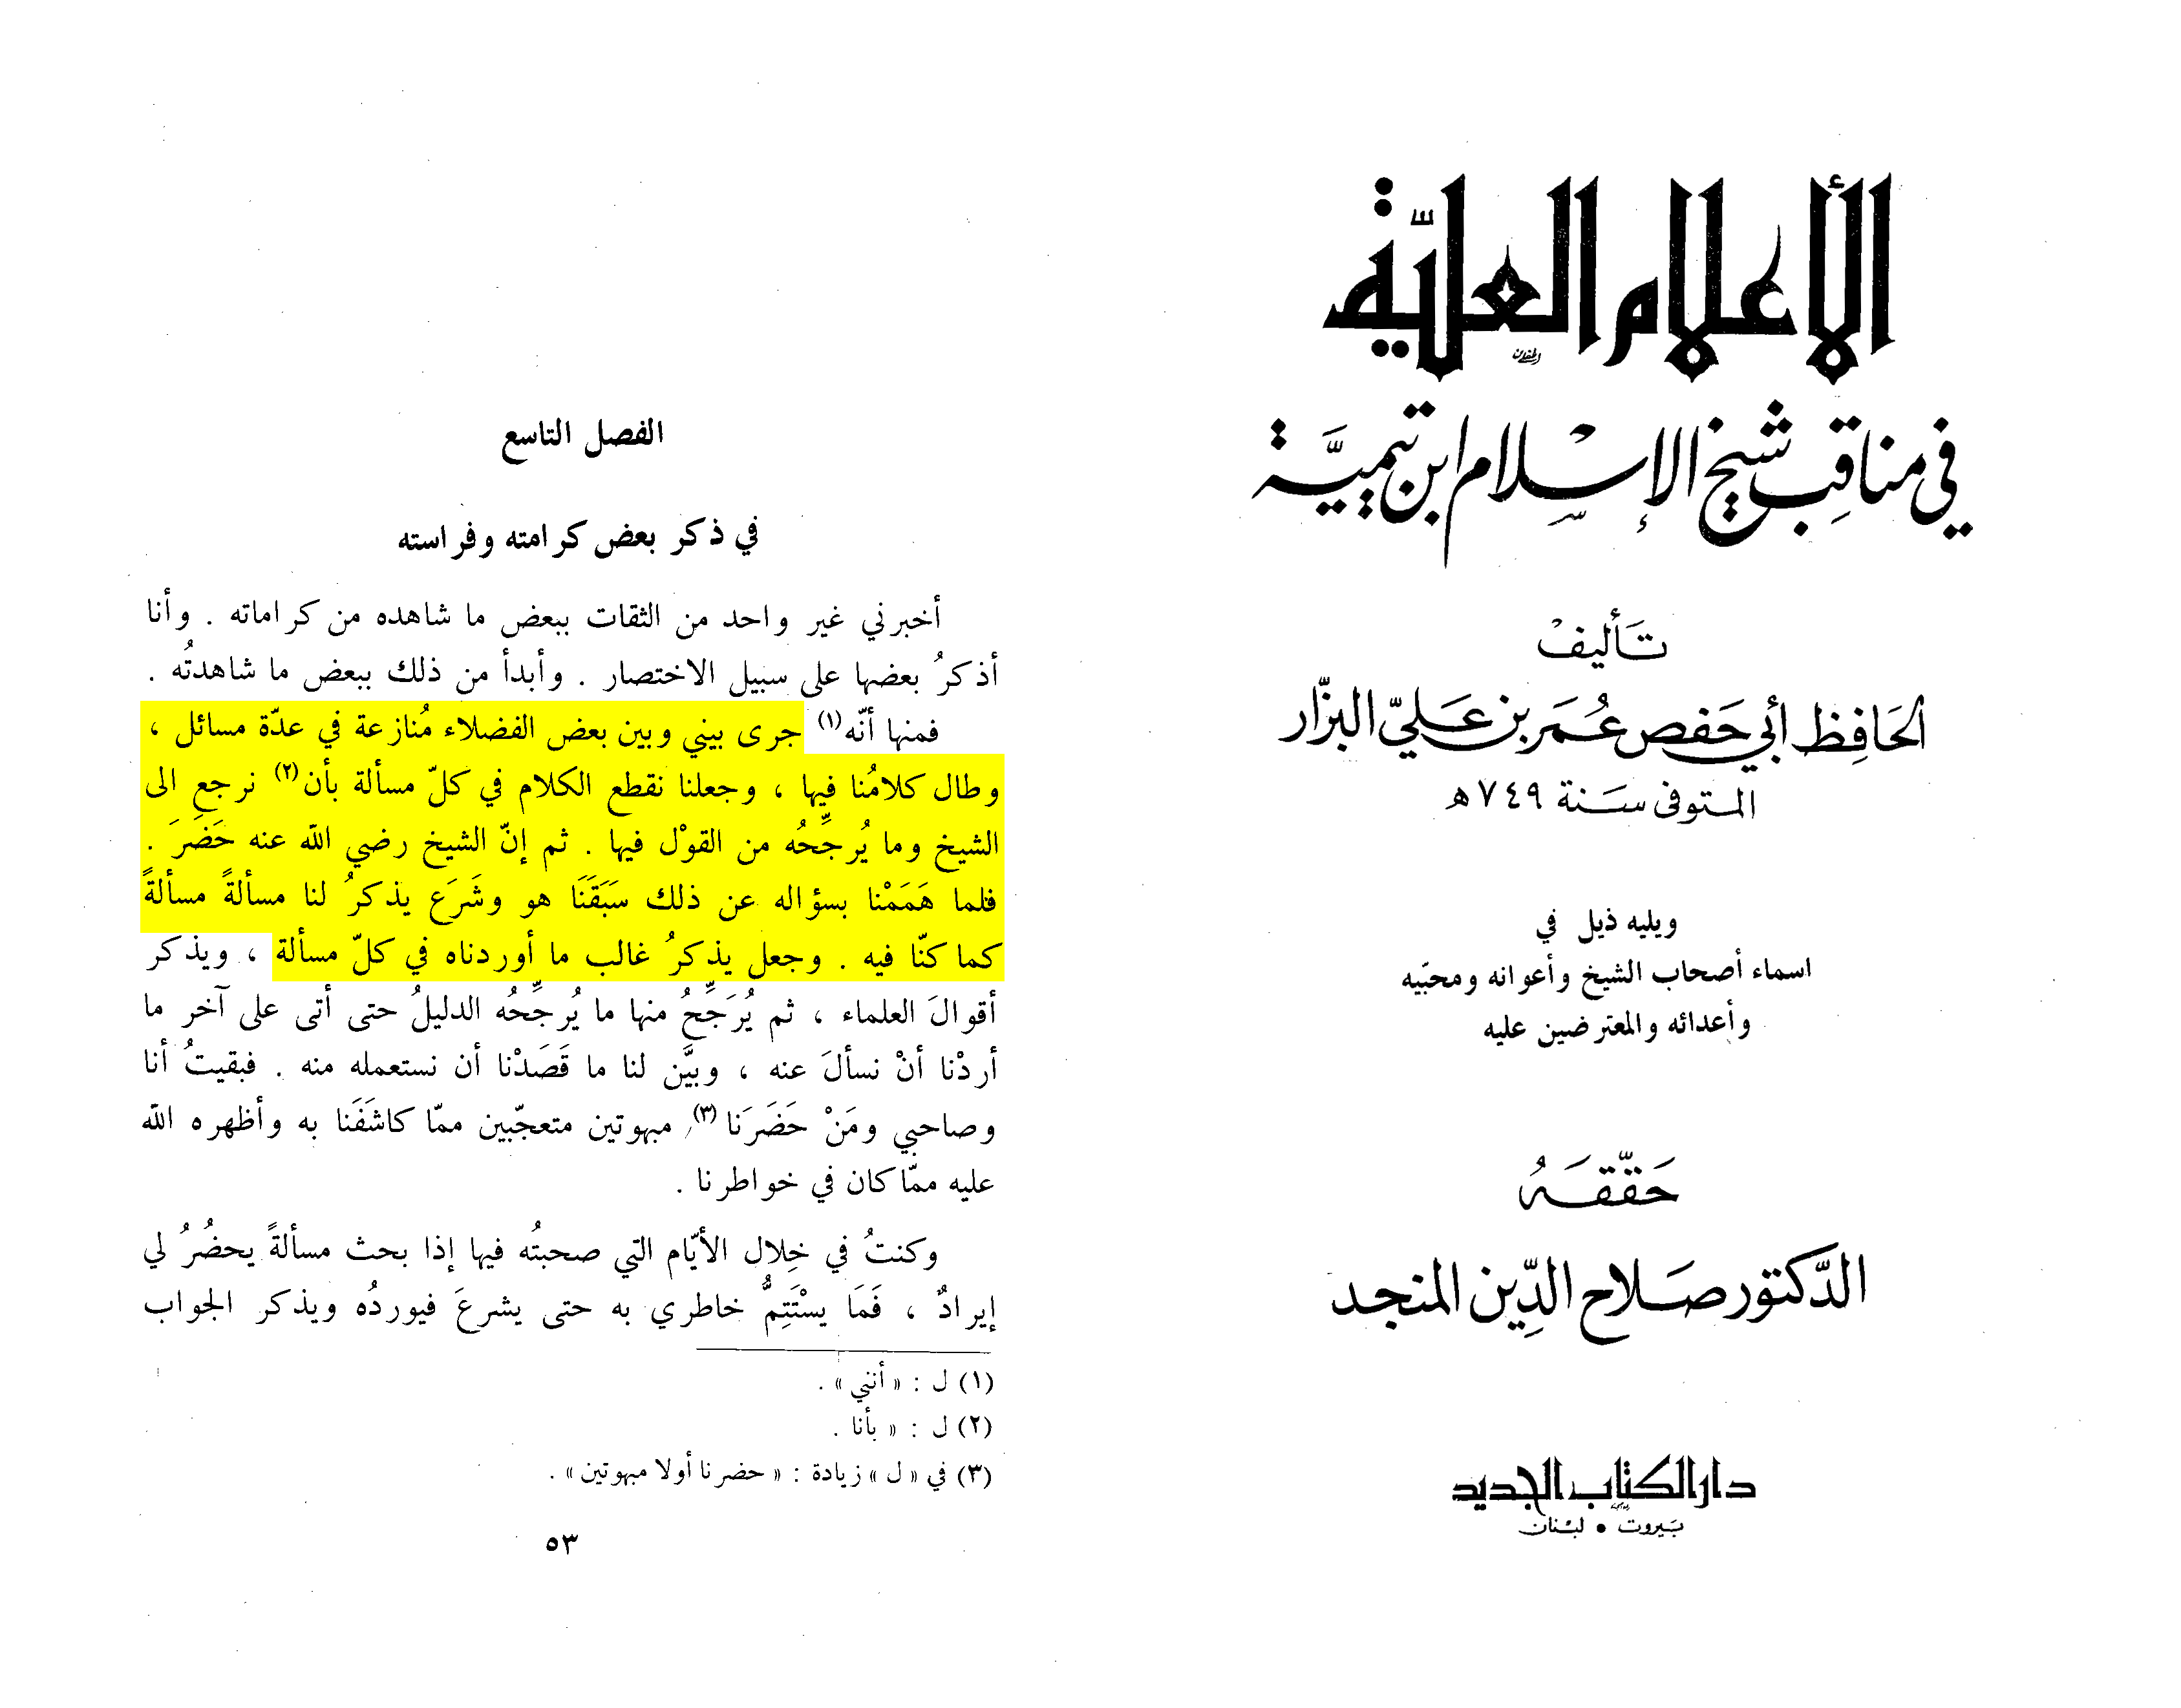 الأعلام العليّة
في مناقِب شيخ الإسْلام ابن تيميَّة
تَأليفْ
الحَافِظ أبي حَفص عُمَر بن عَليّ البزّار
المتوفى سَنة ٧٤٩ ه
ويليه ذيل في
اسماء أصحاب الشيخ وأعوانه ومحبّيه
وأعدائه والمعترضين عليه
حَقّقَهُ
الدّكتور صَلاح الدِّين المنجد
دار الكتاب الجديد
بَيروت • لبْنان
الفصل التاسع
في ذكر بعض كرامته وفراسته
أخبرني غير واحد من الثقات ببعض ما شاهده من كراماته . وأنا
أذكرُ بعضها على سبيل الاختصار . وأبدأ من ذلك ببعض ما شاهدتُه .
فمنها أنّه(١) جرى بيني وبين بعض الفضلاء مُنازعة في عدّة مسائل ،
وطال كلامُنا فيها ، وجعلنا نقطع الكلام في كلّ مسألة بأن(٢) نرجع الى
الشيخ وما يُرجِّحُه من القوْل فيها . ثم إنّ الشيخ رضي الله عنه حَضَرَ .
فلما هَمَمْنا بسؤاله عن ذلك سَبَقَنَا هو وشَرَع يذكرُ لنا مسألةً مسألةً
كما كنّا فيه . وجعل يذكرُ غالب ما أوردناه في كلّ مسألة ، ويذكر
أقوالَ العلماء ، ثم يُرَجِّحُ منها ما يُرجِّحُه الدليلُ حتى أتى على آخر ما
أردْنا أنْ نسألَ عنه ، وبيَّن لنا ما قَصَدْنا أن نستعمله منه . فبقيتُ أنا
وصاحبي ومَنْ حَضَرَنا(٣) مبهوتين متعجّبين ممّا كاشَفَنا به وأظهره الله
عليه ممّا كان في خواطرنا .
وكنتُ في خِلال الأيّام التي صحبتُه فيها إذا بحث مسألةً يحضُرُ لي
إيرادٌ ، فَمَا يسْتَتِمُّ خاطري به حتى يشرعَ فيوردُه ويذكر الجواب
(١) ل : « أنني » .
(٢) ل : « بأنا .
(٣) في « ل » زيادة : « حضرنا أولا مبهوتين » .
٥٣